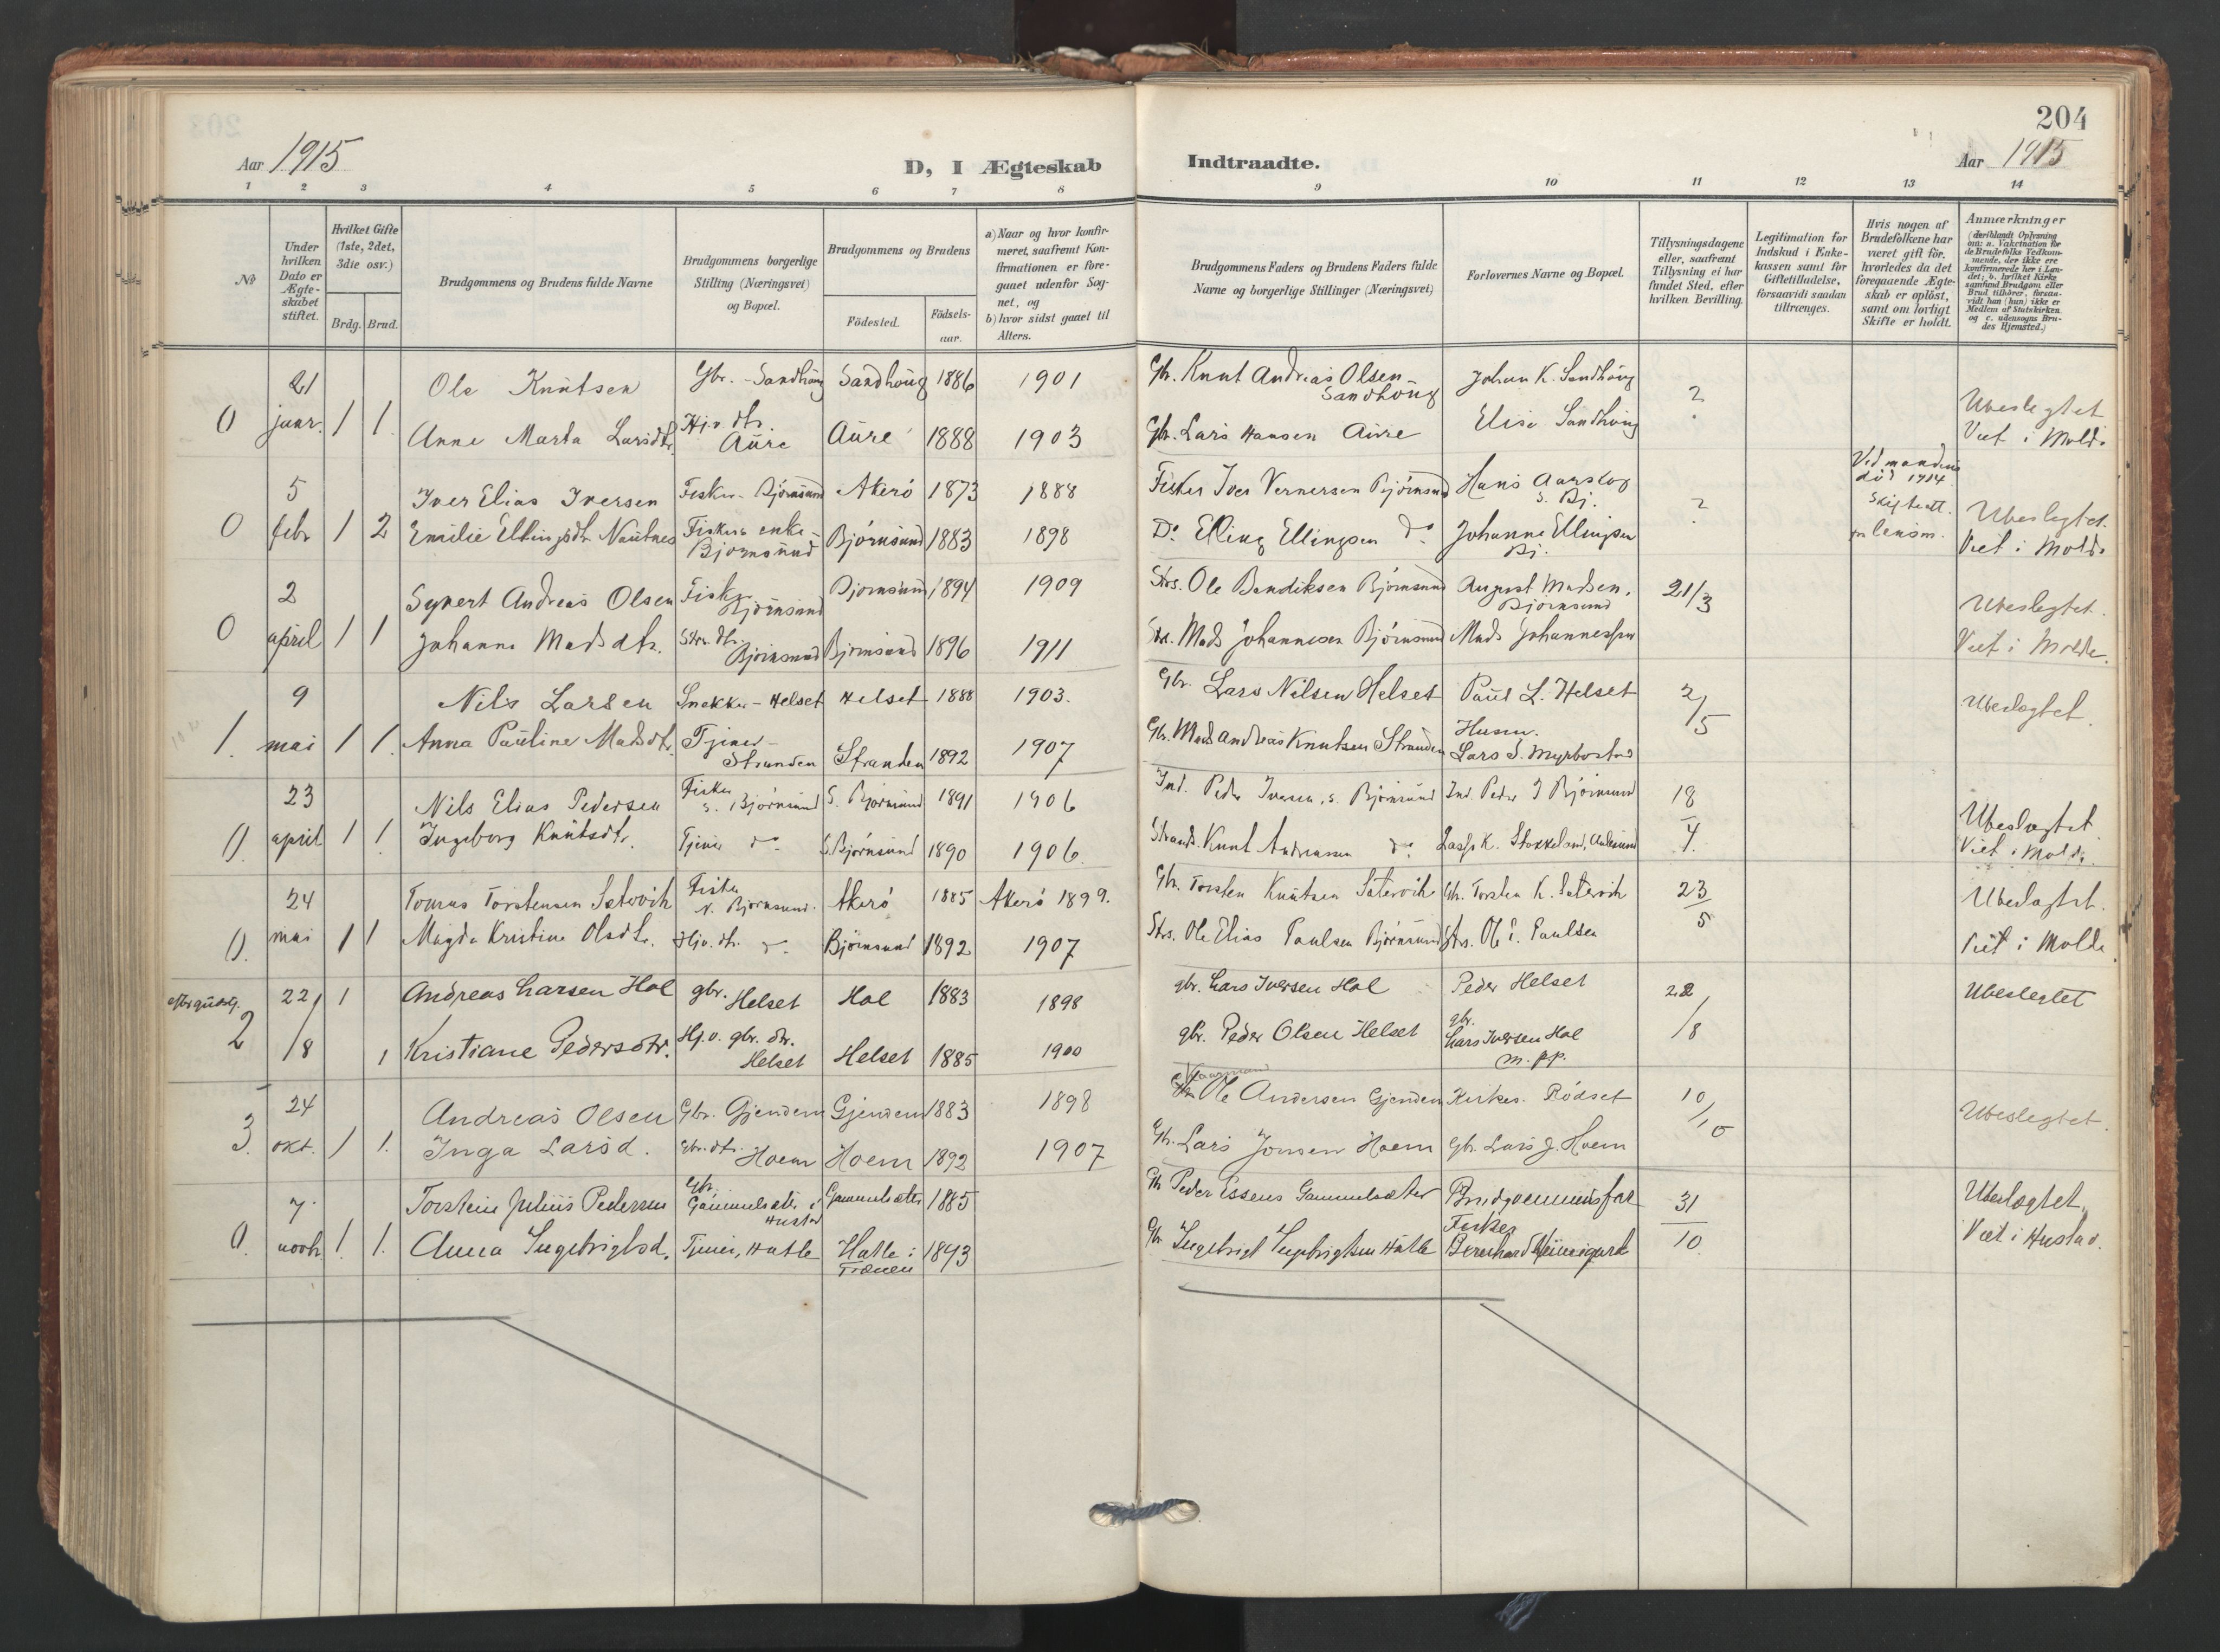 204
Aar 1915
D, I Ægteskab
Indtraadte.
Aar 1915
1 2 3 4 5 6 7 8
9 10 11 12 13 14
No
Under hvilken Dato er Ægteskabet stiftet.
Hvilket Gifte (1ste, 2det, 3die osv.)
Brdg. Brud.
Brudgommens og Brudens fulde Navne
Brudgommens borgerlige Stilling (Næringsvei) og Bopæl.
Brudgommens og Brudens
Födested.
Födselsaar.
a) Naar og hvor konfirmeret, saafremt Konfirmationen er foregaaet udenfor Sognet, og
b) hvor sidst gaaet til Alters.
Brudgommens Faders og Brudens Faders fulde Navne og borgerlige Stillinger (Næringsvei)
Forlovernes Navne og Bopæl.
Tillysningsdagene eller, saafremt Tillysning ei har fundet Sted, efter hvilken Bevilling.
Legitimation for Indskud i Enkekassen samt for Giftetilladelse, forsaavidt saadan tiltrænges.
Hvis nogen af Brudefolkene har været gift för, hvorledes da det foregaaende Ægteskab er oplöst, samt om lovligt Skifte er holdt.
Anmærkninger
(deriblandt Oplysning om: a. Vakcination for de Brudefolks Vedkommende, der ikke ere konfirmerede her i Landet; b. hvilket Kirkesamfund Brudgom eller Brud tilhörer, forsaavidt han (hun) ikke er Medlem af Statskirken og c. udensogns Brudes Hjemsted.)
21 Ole Knutsen Gbr. - Sandhoug Sandhoug 1886 1901 Gbr. Knut Andreas Olsen Sandhoug Johan K. Sandhoug ?
0 januar. 1 1 Anne Marta Larsdtr. Hj.v. dtr. Aure Aure 1888 1903 Gbr. Lars Hansen Aure Elise Sandhoug Ubeslegtet Viet i Molde
5 Iver Elias Iversen Fisker - Bjørnsund Akerö 1873 1888 Fisker Iver Vernersen Bjørnsund Hans Aarskog S. Bj. ? Ved mandens död 1914
0 febr 1 2 Emilie Ellingsdtr. Nautnes Fiskers enke - Bjørnsund Bjørnsund 1883 1898 Do Elling Ellingsen do Johanne Ellingsen Bj. lensm. Ubeslegtet. Viet i Molde
2 Syvert Andreas Olsen Fisker Bjørnsund Bjørnsund 1894 1909 Strs. Ole Bendiksen Bjørnsund August Madsen, Bjørnsund 21/3 Ubeslegtet.
0 april 1 1 Johanne Madsdtr. Str. dtr. Bjørnsund Bjørnsund 1896 1911 Mads Johannesen Bjørnsund Mads Johannessen Viet i Molde.
9 Nils Larsen Snekker - Helset Helset 1888 1903. Gbr. Lars Nilsen Helset Paul L. Helset 2/5 Ubeslegtet.
1. mai 1 1. Anna Pauline Madsdtr. Tjener - Stranden Stranden 1892 1907 Gbr. Mads Andreas Knutsen Stranden Husm. Lars S. Myrbostad
23 Nils Elias Pedersen Fisker S. Bjørnsund S. Bjørnsund 1891 1906 Ind. Peder Iversen, S. Bjørnsund Ind. Peder I Bjørnsund 18/4 Ubeslegtet
0. april 1 1 Ingeborg Knutsdtr. Tjener do S. Bjørnsund 1890 1906. Knut Andreassen do K. Stokkeland, Aalesund Viet i Molde.
24 Tomas Torstensen Setervik Fisker N. Bjørnsund. Akerö 1885 Akerö 1899. Gbr. Torsten Knutsen Setervik Gbr. Torsten K. Setervik 23/5 Ubeslegtet.
0. mai 1 1 Magda Kristine Olsdtr. Hjv. dtr. do Bjørnsund 1892 1907 Strs. Ole Elias Paulsen Bjørnsund Strs. Ole E. Paulsen Viet i Molde
22/8 1 Andreas Larsen Hol gbr. Helset Hol 1883 1898 gbr. Lars Iversen Hol Peder Helset 22/8 Ubeslegtet
2 1 Kristiane Pedersdtr. Hj.v. gbr. dtr. Helset Helset 1885 1900 gbr. Peder Olsen Helset gbr. Lars Iversen Hol m. p.p.
24 Andreas Olsen Gbr. Gjendem Gjendem 1883 1898 Kaarmand Ole Andersen Gjendem Kirkes. Rödset 10/10 Ubeslegtet.
3. okt. 1 1. Inga Larsd. Gbr. dtr. Hoem Hoem 1892 1907 Gbr. Lars Jonsen Hoem Gbr. Lars J. Hoem
7 Torstein Julius Pedersen Gbr. Gammelsæter i Hustad Gammelsæter 1885 Gbr Peder Essens Gammelsæter Brudgommens far 31/10 Ubeslegtet.
0. novbr 1. 1. Anna Ingebrigtsd. Tjener, Hatle Hatle i Frænen 1893 Gbr Ingebrigt Ingebrigtsen Hatle Fisker Bernhard Viet i Hustad.